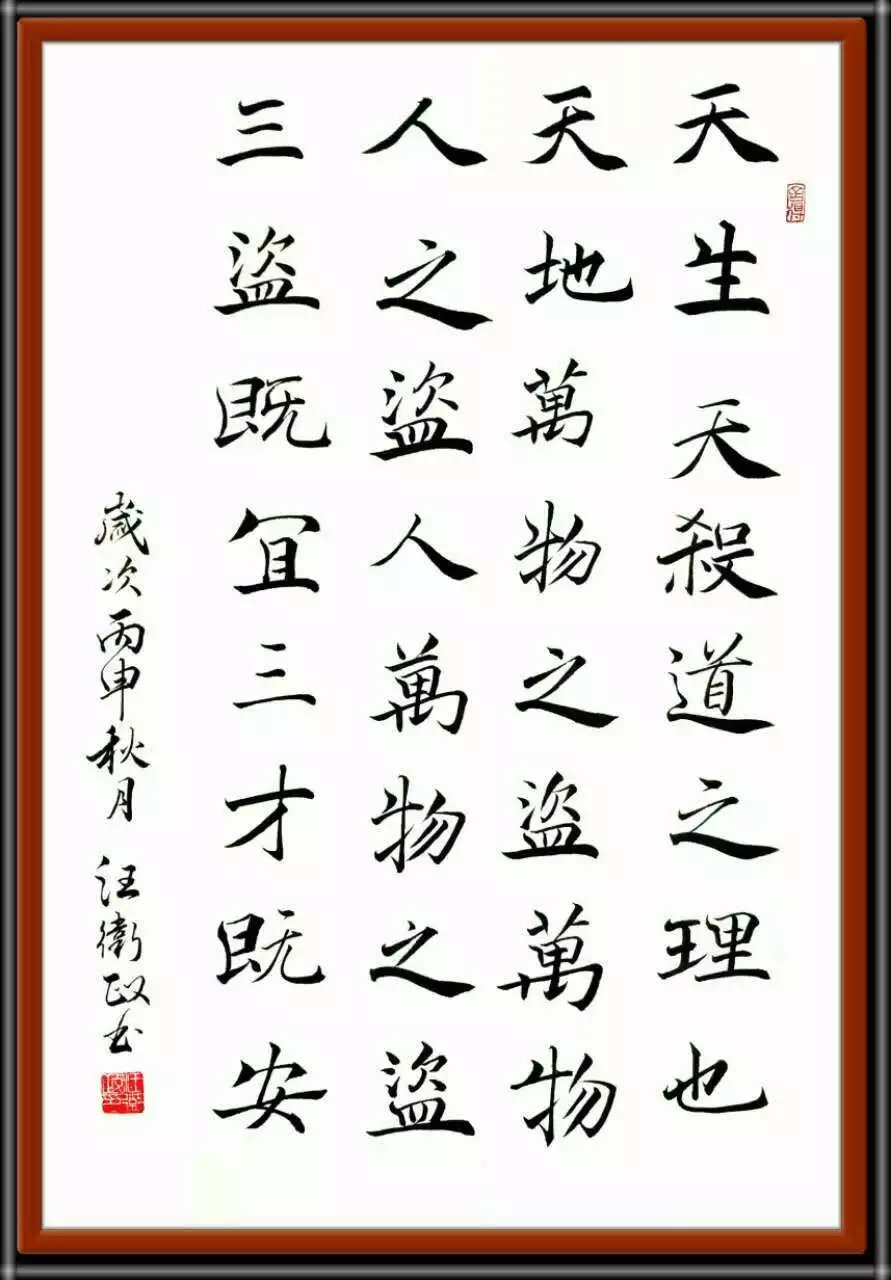 天生天殺道之理也
天地萬物之盜萬物
人之盜人萬物之盜
三盜既宜三才既安
歲次丙申秋月 汪衛政书